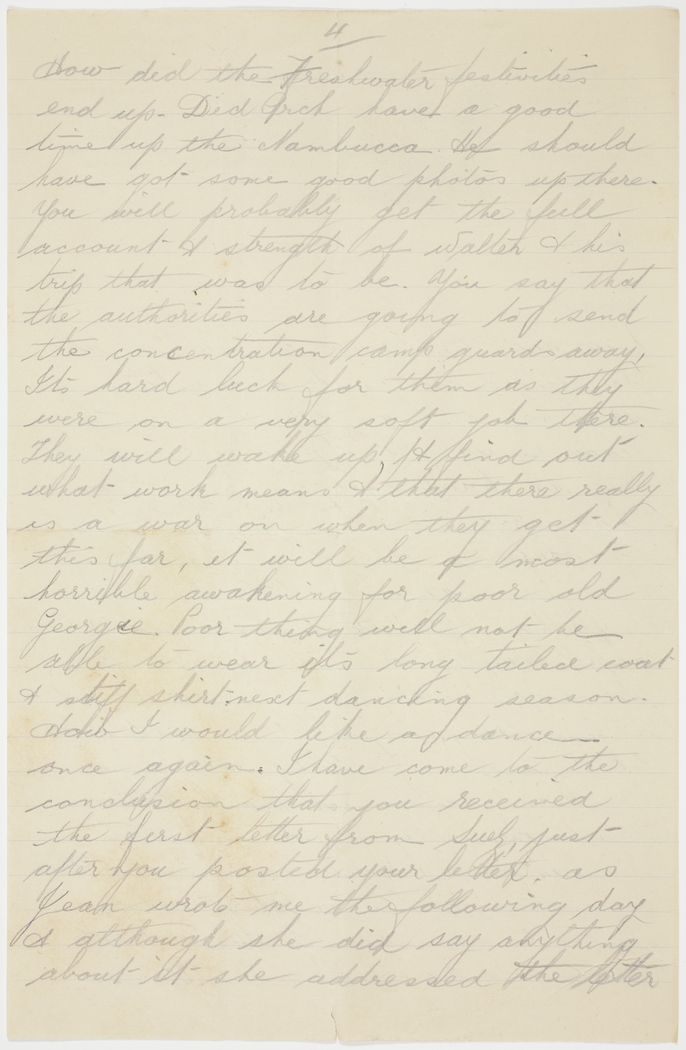 4
How did the Freshwater festivities
end up. Did Arch have a good
time up the Nambucca. He should
have got some good photos up there.
You will probably get the full
account & strength of Walter & his
trip that was to be. You say that
the authorities are going to send
the concentration camp guards away,
Its hard luck for them as they
were on a very soft job there.
They will wake up, & find out
what work means & that there really
is a war on when they get
this far, it will be a most
horrible awakening for poor old
Georgie. Poor thing will not be
able to wear its long tailed coat
& stiff shirt next dancing season.
How I would like a dance
once again. I have come to the
conclusion that you received
the first letter from Suez, just
after you posted your letter. as
Jean wrote me the following day
& although she did say anything
about it she addressed the letter